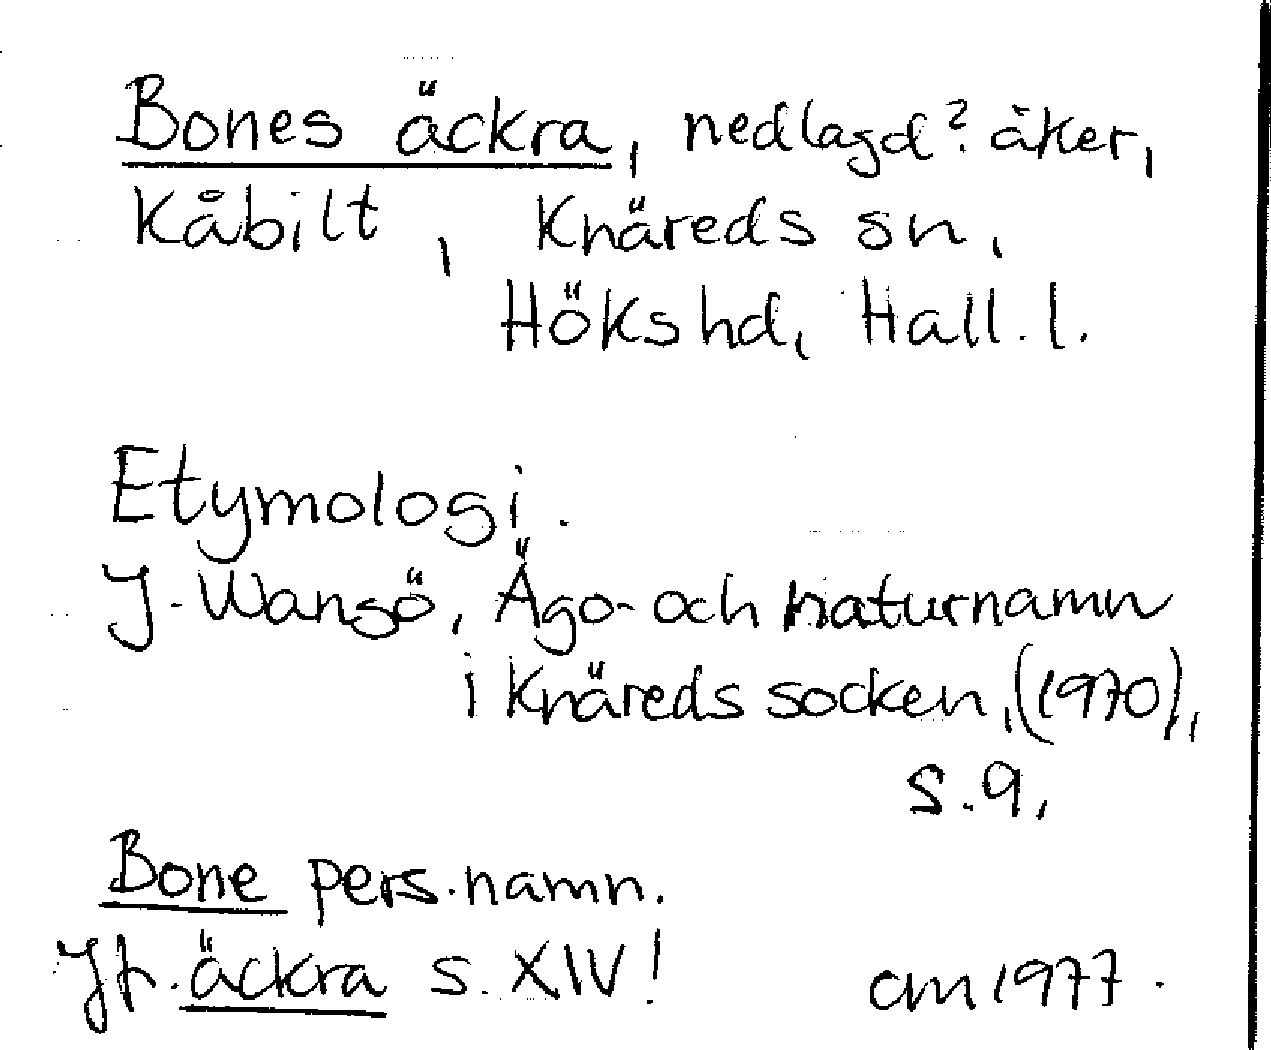 Bones äckra, nedlagd? åker,
Kåbilt, Knäreds sn,
Höks hd, Hall. l.
Etymologi.
J. Wangö, Ägo- och naturnamn
i Knäreds socken, (1970),
s. 9,
Bone pers.namn.
Jfr. äckra s. XIV!
cm 1977.